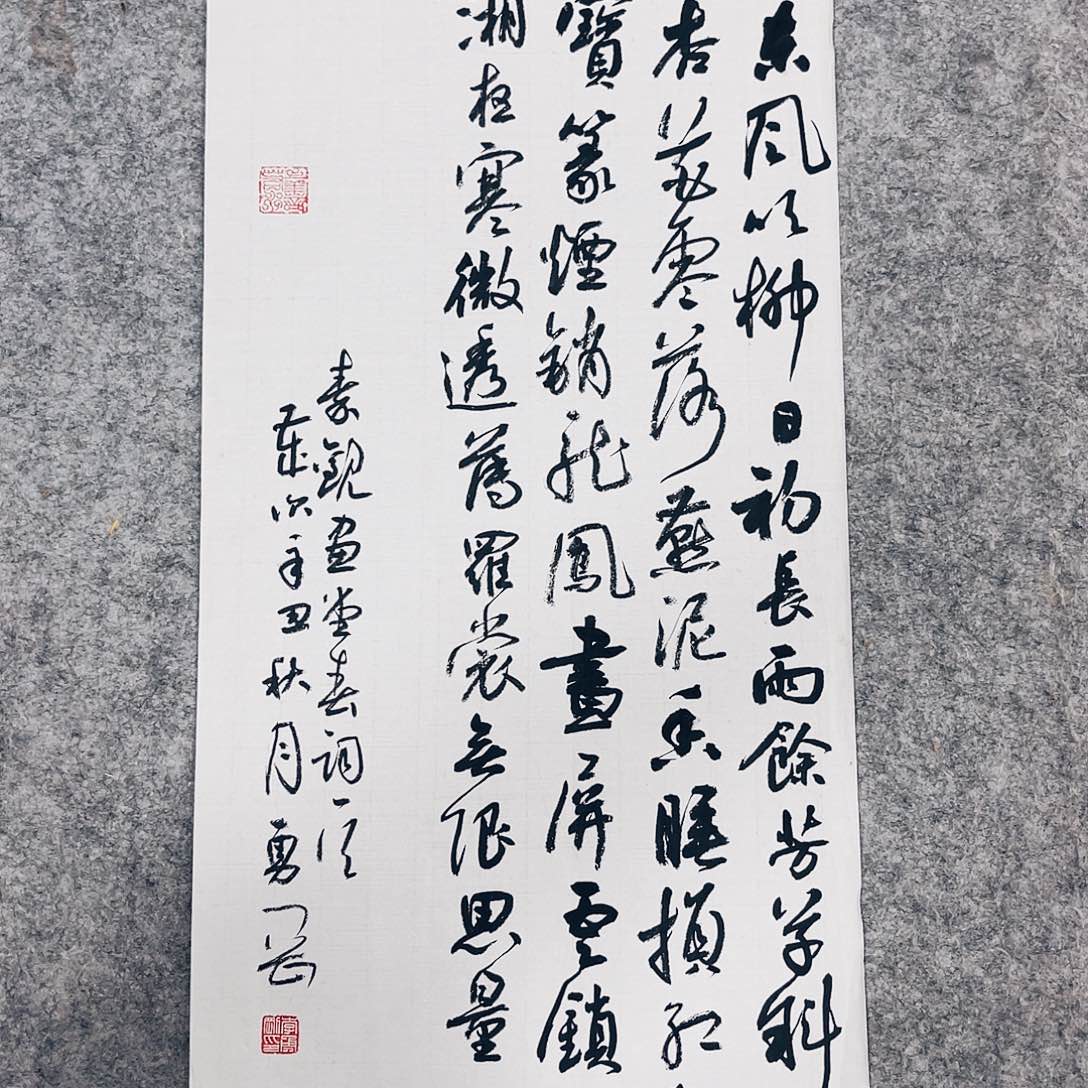 東風吹柳日初長雨餘芳草斜
杏花零落燕泥香睡損紅
寶篆煙銷龍鳳畫屏雲鎖
湘寒微透薄羅裳無限思量
秦觀畫堂春詞一首
歲次辛丑秋月勇